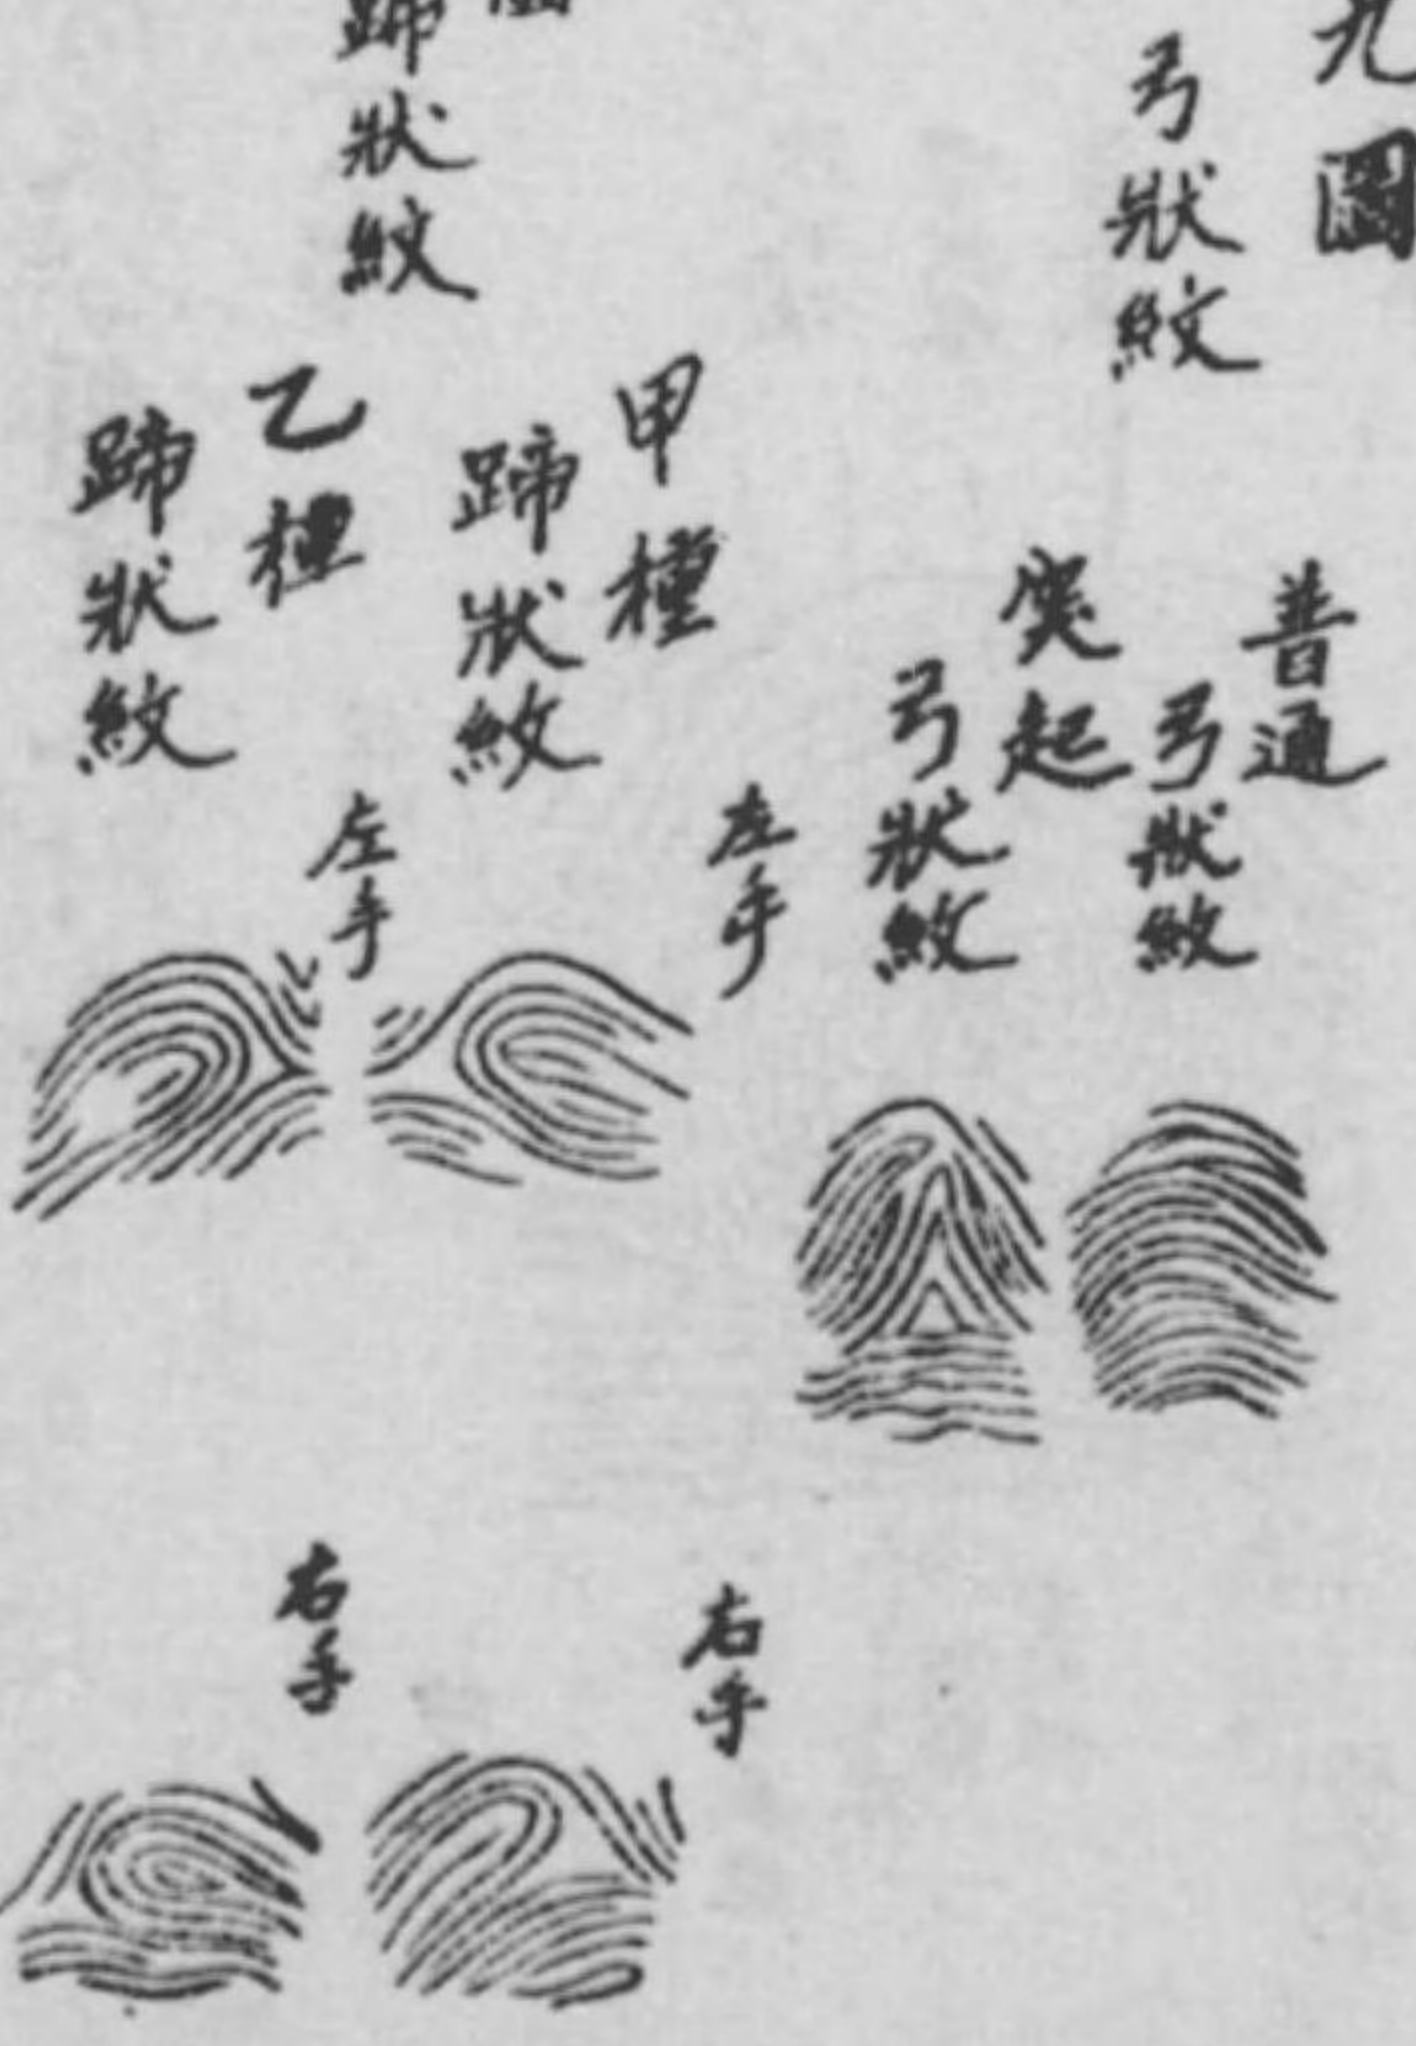 九圖
弓狀紋
普通
弓狀紋
突起
弓狀紋
圖
蹄狀紋
甲種
蹄狀紋
左手
右手
乙種
蹄狀紋
左手
右手